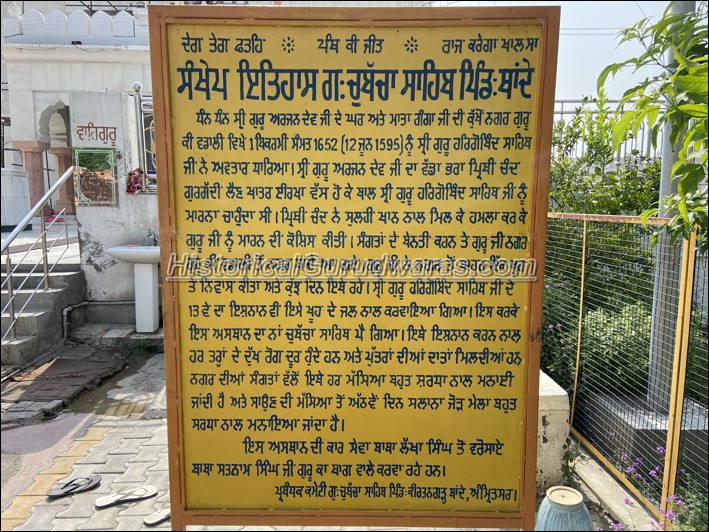 ਦੇਗ ਤੇਗ ਫਤਹਿ ਪੰਥ ਕੀ ਜੀਤ ਰਾਜ ਕਰੇਗਾ ਖਾਲਸਾ
ਸੰਖੇਪ ਇਤਿਹਾਸ ਗੁ: ਚੁਬੱਚਾ ਸਾਹਿਬ ਪਿੰਡ: ਥਾਂਦੇ
ਧੰਨ ਧੰਨ ਸ੍ਰੀ ਗੁਰੂ ਅਰਜਨ ਦੇਵ ਜੀ ਦੇ ਘਰ ਅਤੇ ਮਾਤਾ ਗੰਗਾ ਜੀ ਦੀ ਕੁੱਖੋਂ ਨਗਰ ਗੁਰੂ
ਕੀ ਵਡਾਲੀ ਵਿਖੇ 1 ਬਿਕਰਮੀ ਸੰਮਤ 1652 (12 ਜੂਨ 1595) ਨੂੰ ਸ੍ਰੀ ਗੁਰੂ ਹਰਿਗੋਬਿੰਦ ਸਾਹਿਬ
ਜੀ ਨੇ ਅਵਤਾਰ ਧਾਰਿਆ। ਸ੍ਰੀ ਗੁਰੂ ਅਰਜਨ ਦੇਵ ਜੀ ਦਾ ਵੱਡਾ ਭਰਾ ਪ੍ਰਿਥੀ ਚੰਦ
ਗੁਰਗੱਦੀ ਲੈਣ ਖਾਤਰ ਈਰਖਾ ਵੱਸ ਹੋ ਕੇ ਬਾਲ ਸ੍ਰੀ ਗੁਰੂ ਹਰਿਗੋਬਿੰਦ ਸਾਹਿਬ ਜੀ ਨੂੰ
ਮਾਰਨਾ ਚਾਹੁੰਦਾ ਸੀ। ਪ੍ਰਿਥੀ ਚੰਦ ਨੇ ਸੁਲਹੀ ਖਾਨ ਨਾਲ ਮਿਲ ਕੇ ਹਮਲਾ ਕਰ ਕੇ
ਗੁਰੂ ਜੀ ਨੂੰ ਮਾਰਨ ਦੀ ਕੋਸ਼ਿਸ ਕੀਤੀ। ਸੰਗਤਾਂ ਦੇ ਬੇਨਤੀ ਕਰਨ ਤੇ ਗੁਰੂ ਜੀ ਨਗਰ
HistoricalGurudwaras.com
ਤੇ ਨਿਵਾਸ ਕੀਤਾ ਅਤੇ ਕੁੱਝ ਦਿਨ ਇਥੇ ਰਹੇ। ਸ੍ਰੀ ਗੁਰੂ ਹਰਿਗੋਬਿੰਦ ਸਾਹਿਬ ਜੀ ਦੇ
13 ਵੇ ਦਾ ਇਸ਼ਨਾਨ ਵੀ ਇਸੇ ਖੂਹ ਦੇ ਜਲ ਨਾਲ ਕਰਵਾਇਆ ਗਿਆ। ਇਸ ਕਰਕੇ
ਇਸ ਅਸਥਾਨ ਦਾ ਨਾਂ ਚੁਬੱਚਾ ਸਾਹਿਬ ਪੈ ਗਿਆ। ਇਥੇ ਇਸ਼ਨਾਨ ਕਰਨ ਨਾਲ
ਹਰ ਤਰ੍ਹਾਂ ਦੇ ਦੁੱਖ ਰੋਗ ਦੂਰ ਹੁੰਦੇ ਹਨ ਅਤੇ ਪੁੱਤਰਾਂ ਦੀਆਂ ਦਾਤਾਂ ਮਿਲਦੀਆਂ ਹਨ
ਨਗਰ ਦੀਆਂ ਸੰਗਤਾਂ ਵੱਲੋਂ ਇਥੇ ਹਰ ਮੱਸਿਆ ਬਹੁਤ ਸ਼ਰਧਾ ਨਾਲ ਮਨਾਈ
ਜਾਂਦੀ ਹੈ ਅਤੇ ਸਾਉਣ ਦੀ ਮੱਸਿਆ ਤੋਂ ਅੱਠਵੇਂ ਦਿਨ ਸਲਾਨਾ ਜੋੜ ਮੇਲਾ ਬਹੁਤ
ਸਰਧਾ ਨਾਲ ਮਨਾਇਆ ਜਾਂਦਾ ਹੈ।
ਇਸ ਅਸਥਾਨ ਦੀ ਕਾਰ ਸੇਵਾ ਬਾਬਾ ਲੱਖਾ ਸਿੰਘ ਤੋਂ ਵਰੋਸਾਏ
ਬਾਬਾ ਸਤਨਾਮ ਸਿੰਘ ਜੀ ਗੁਰੂ ਕਾ ਬਾਗ ਵਾਲੇ ਕਰਵਾ ਰਹੇ ਹਨ।
ਪ੍ਰਬੰਧਕ ਕਮੇਟੀ ਗੁ: ਚੁਬੱਚਾ ਸਾਹਿਬ ਪਿੰਡ: ਕੀਰਤਨਗੜ੍ਹ ਥਾਂਦੇ, ਅੰਮ੍ਰਿਤਸਰ।
ਵਾਹਿਗੁਰੂ